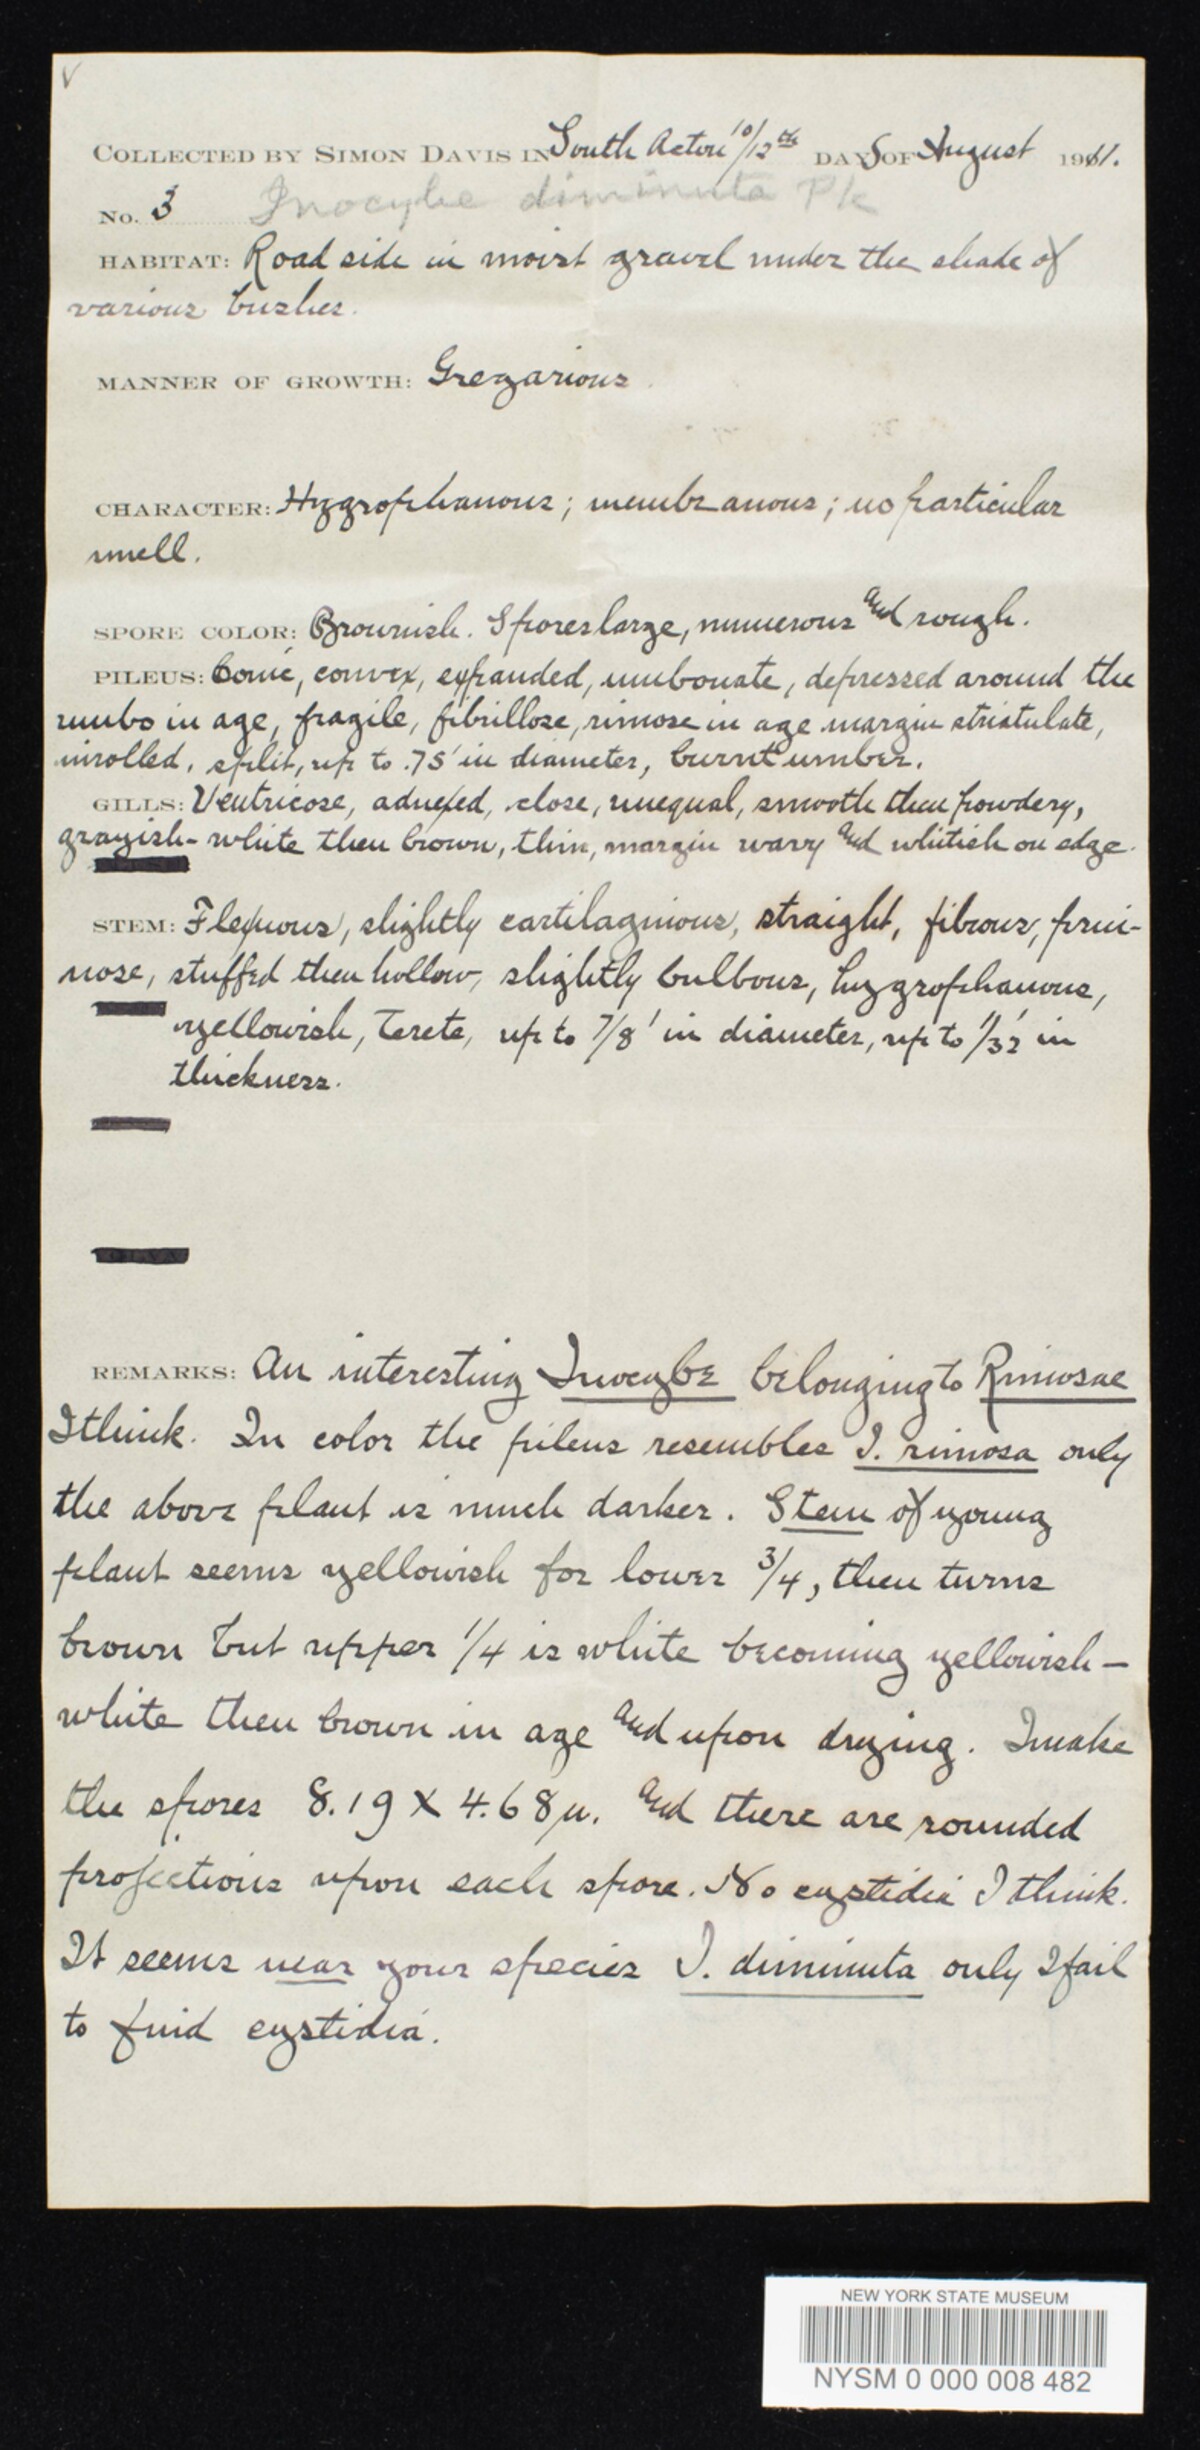 V
COLLECTED BY SIMON DAVIS IN South Acton 10/12th DAYS OF August 1911.
No. 3 Inocybe diminuta Pk
HABITAT: Road side in moist gravel under the shade of
various bushes.
MANNER OF GROWTH: Gregarious.
CHARACTER: Hygrophanous; membranous; no particular
smell.
SPORE COLOR: Brownish. Spores large, numerous and rough.
PILEUS: Conic, convex, expanded, umbonate, depressed around the
umbo in age, fragile, fibrillose, rimose in age margin striatulate,
inrolled, split, up to .75' in diameter, burnt umber.
GILLS: Ventricose, adnexed, close, unequal, smooth then powdery,
grayish-white then brown, thin, margin wavy and whitish on edge.
STEM: Flexuous, slightly cartilaginous, straight, fibrous, prui-
nose, stuffed then hollow, slightly bulbous, hygrophanous,
yellowish, terete, up to 7/8' in diameter, up to 1/32' in
thickness.
REMARKS: An interesting Inocybe belonging to Rimosae
I think. In color the pileus resembles I. rimosa only
the above plant is much darker. Stem of young
plant seems yellowish for lower 3/4, then turns
brown but upper 1/4 is white becoming yellowish-
white then brown in age and upon drying. I make
the spores 8.19 X 4.68 µ. and there are rounded
projections upon each spore. No cystidia I think.
It seems near your species I. diminuta only I fail
to find cystidia.
NEW YORK STATE MUSEUM
NYSM 0 000 008 482